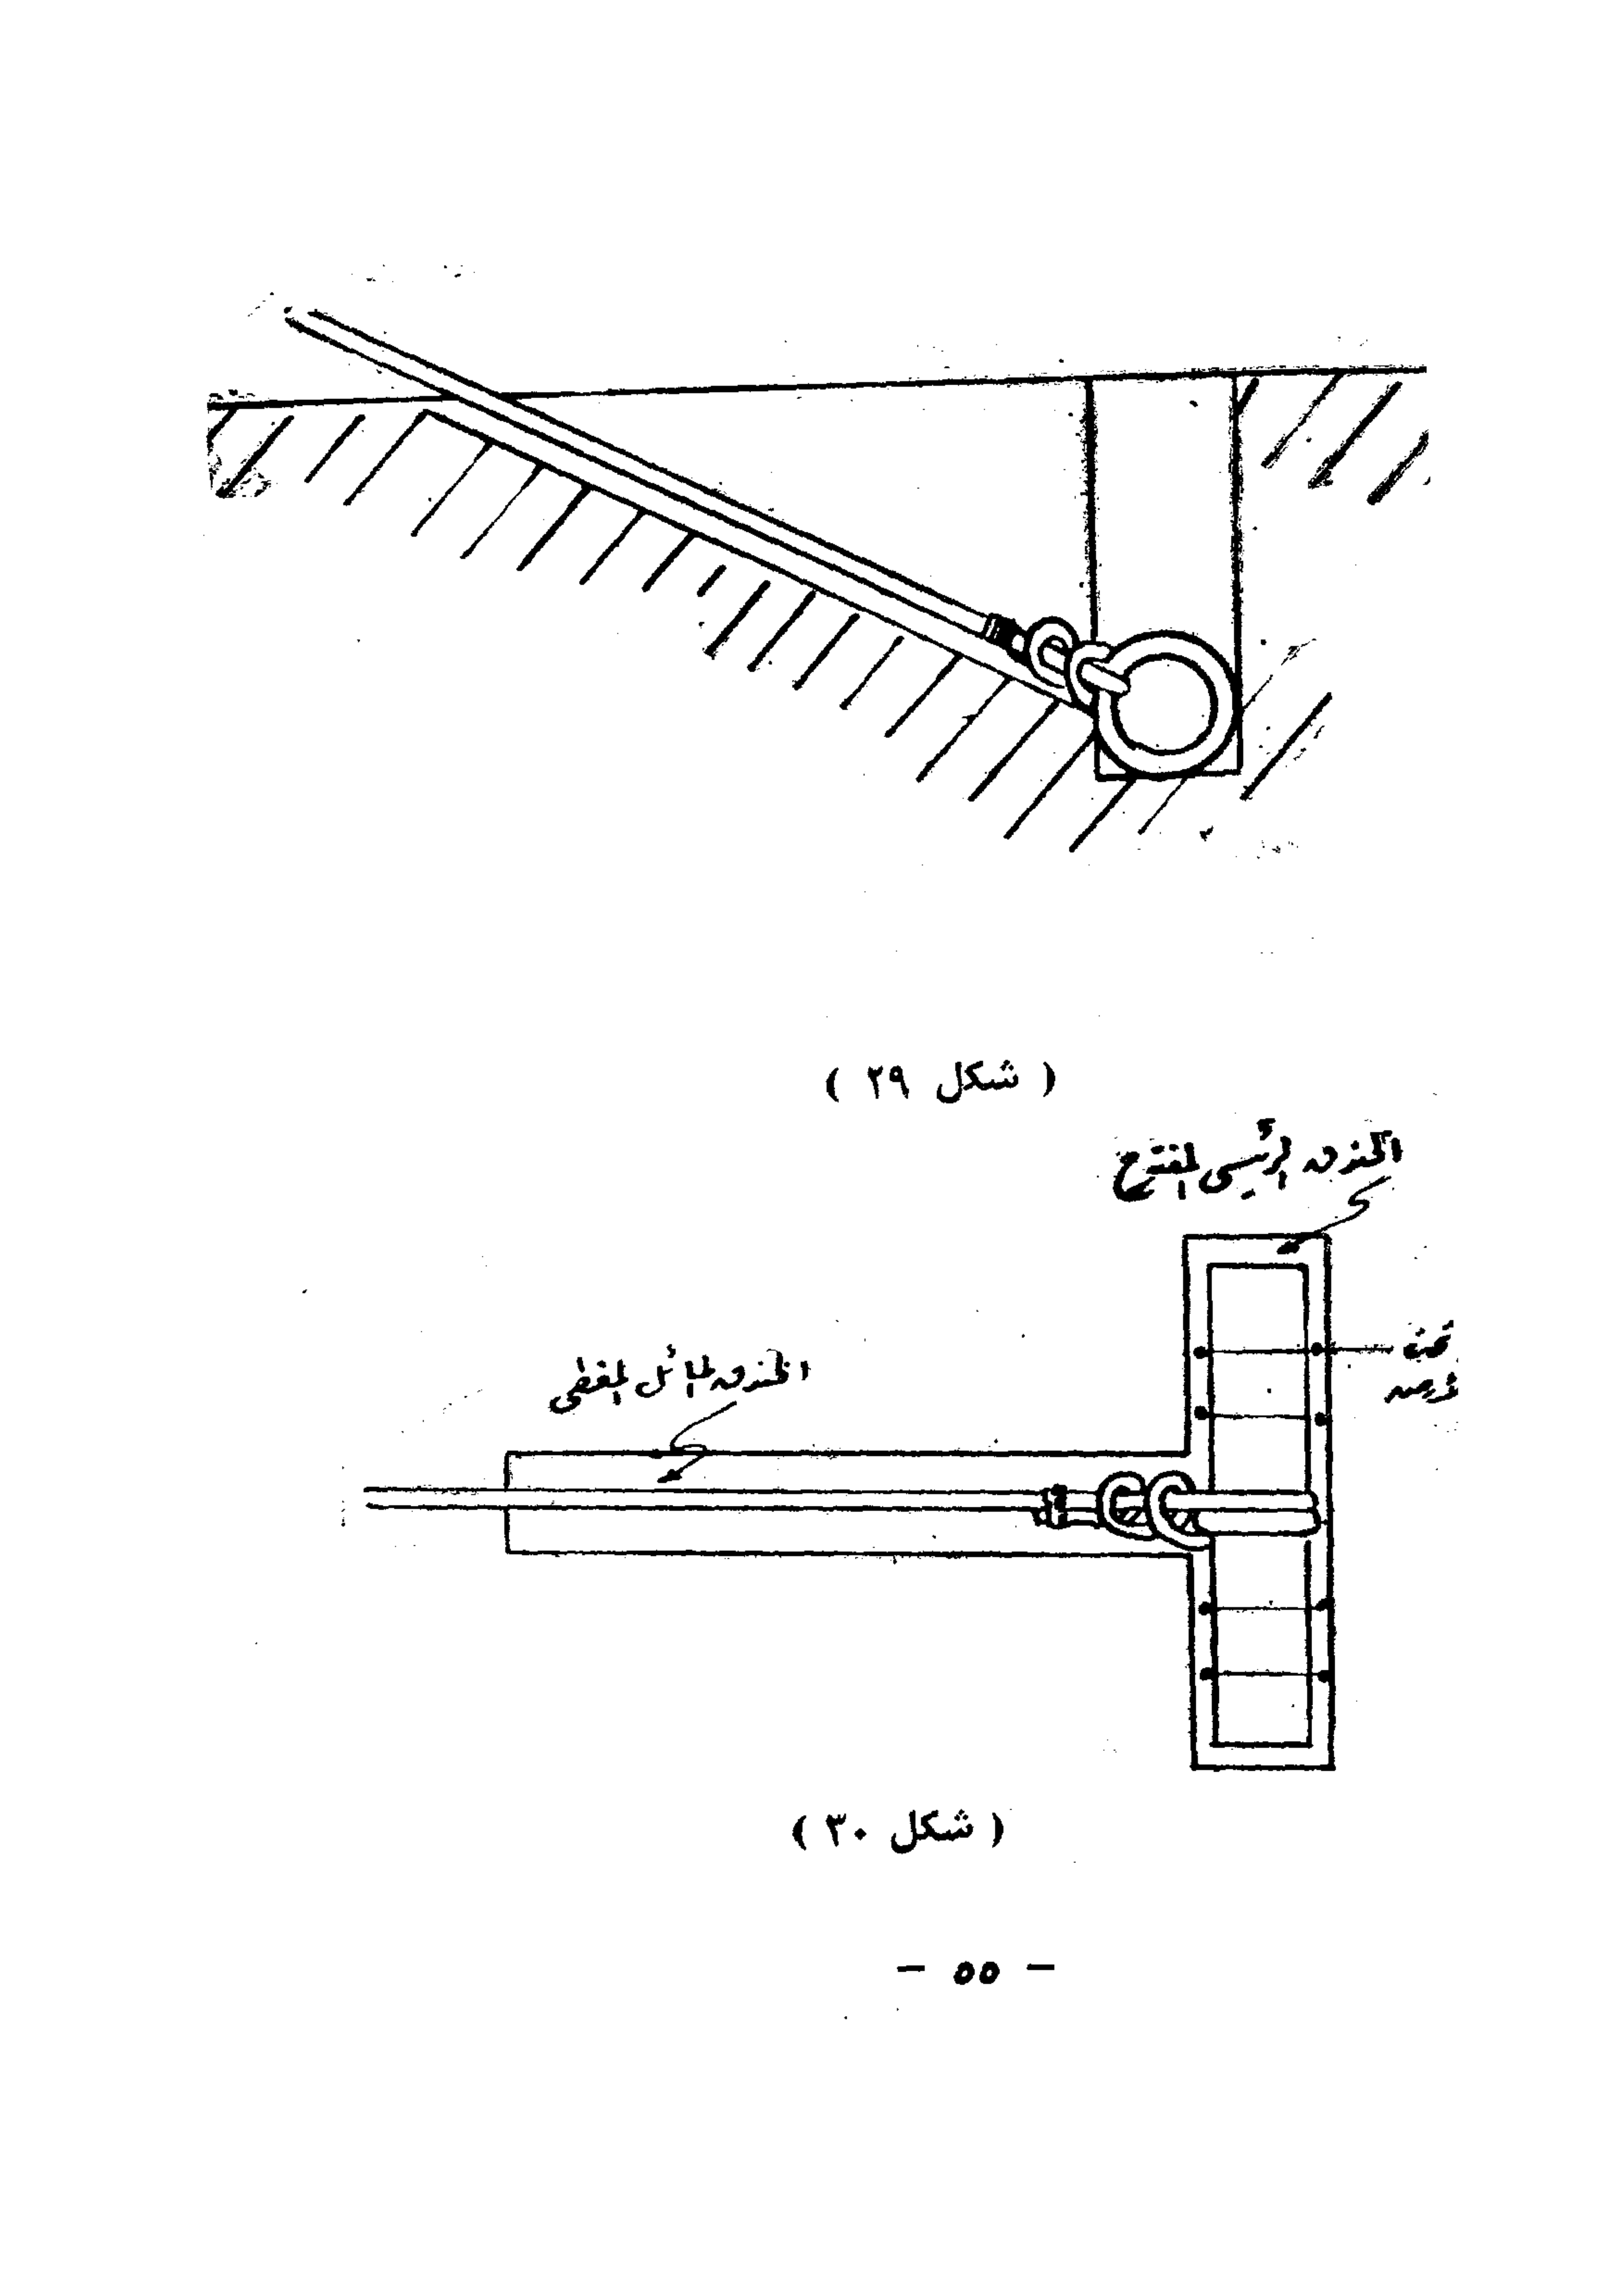 ( شكل ٢٩ )
الخندق الرئيسي المفتوح
الخندق المائل المغطى
( شكل ٣٠ )
- ٥٥ -